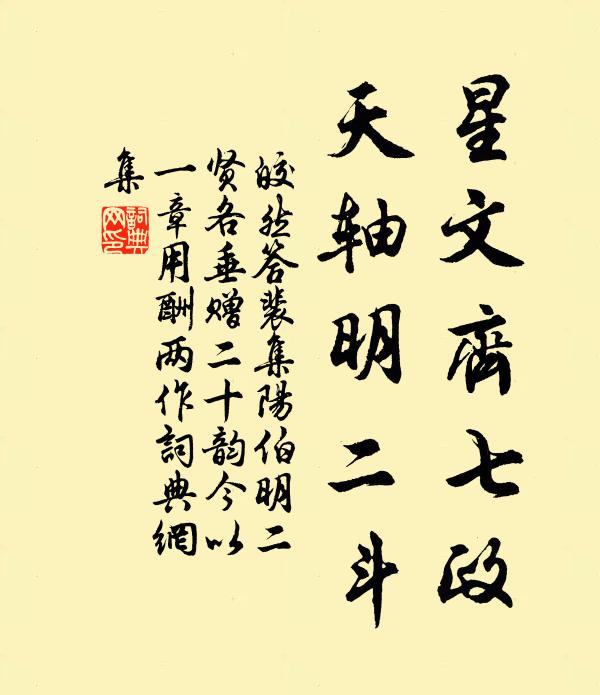 星文齊七政
天轴明二斗
皎然答裴集陽伯明二
贤各垂赠二十韵今以
一章用酬两作詞典網
集
詞典
网印